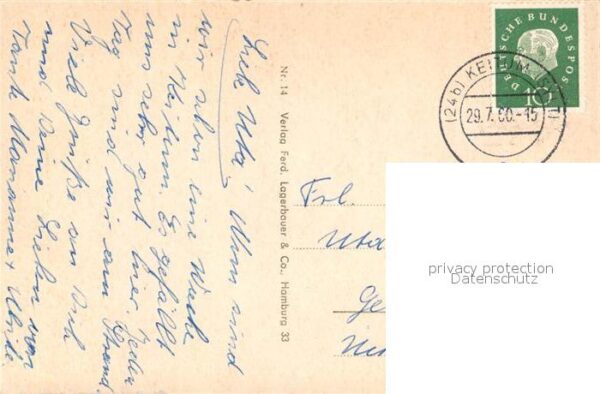 Liebe Uta! Nun sind
wir schon eine Woche
in Keitum. Es gefällt
uns sehr gut hier. Jeden
Tag sind wir am Strand.
Viele Grüße an Dich
und Deine Lieben von
Tante Marianne +
Nr. 14 Verlag Ferd. Lagerbauer & Co., Hamburg 33
DEUTSCHE BUNDESPOS
10
(24b) KEITUM
29.7.60.-15
Frl.
Uta
privacy protection
Datenschutz